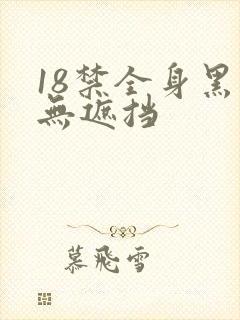 18禁全身黑
無遮挡
慕飛雪